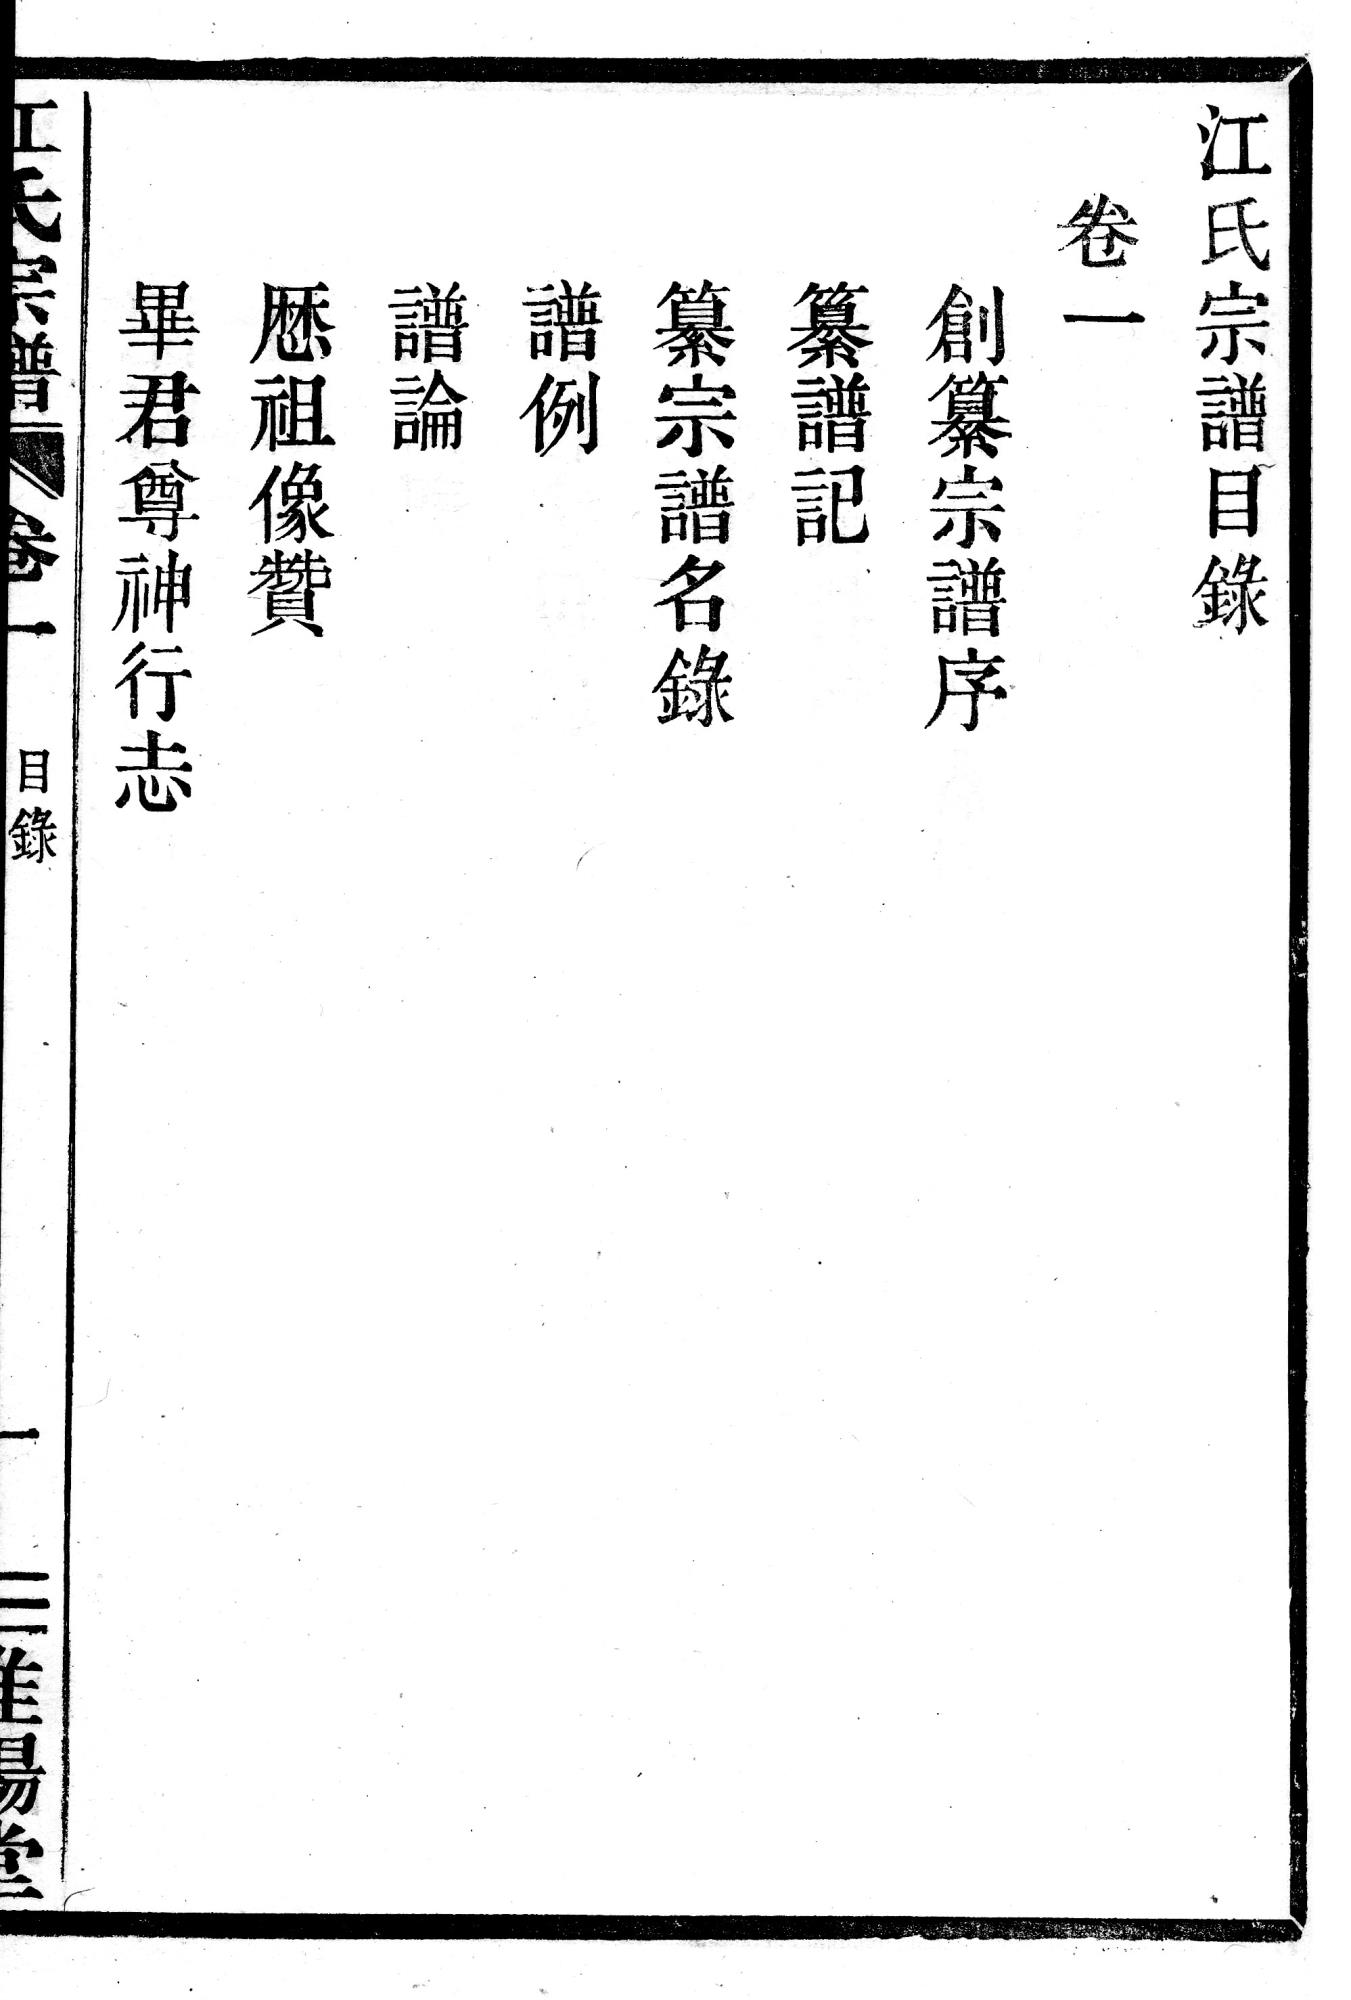 江氏宗譜目錄
卷一
創纂宗譜序
纂譜記
纂宗譜名錄
譜例
譜論
歷祖像贊
畢君尊神行志
江氏宗譜 卷一 目錄 一 三 淮陽堂